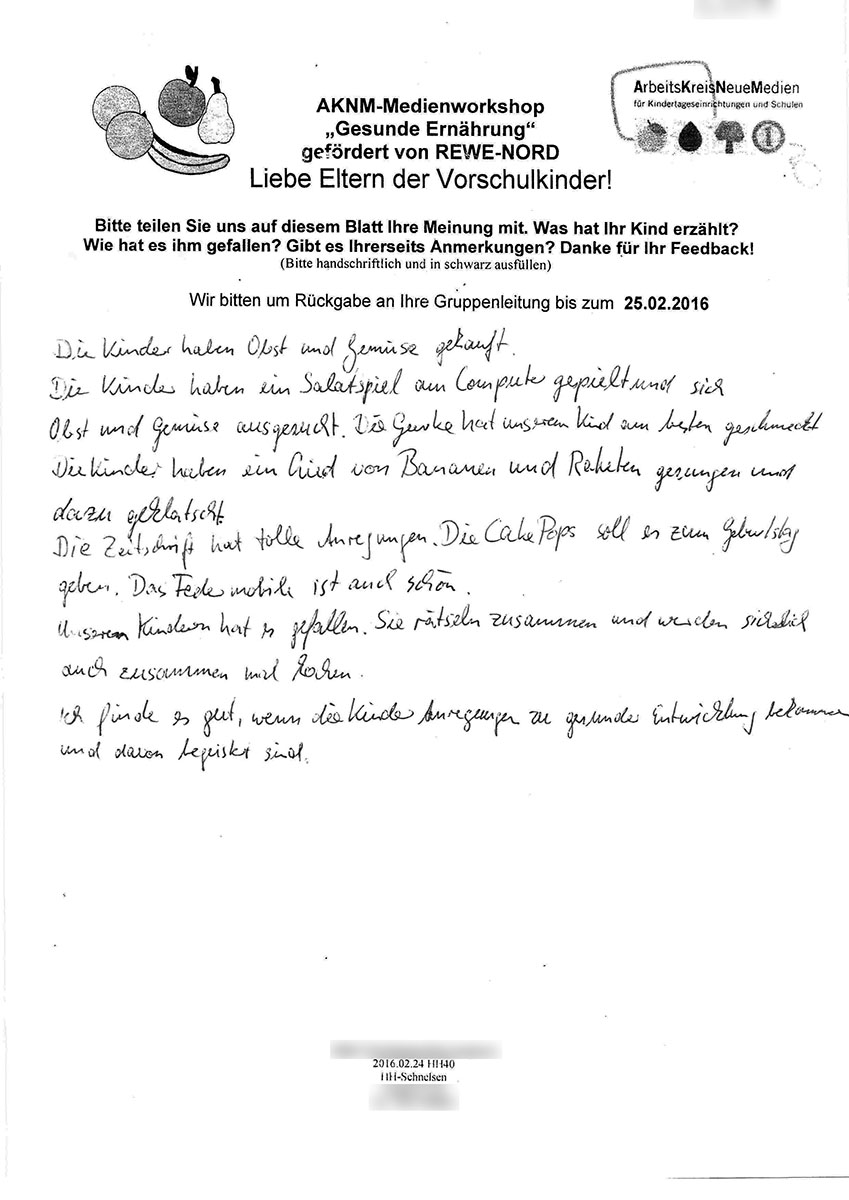 AKNM-Medienworkshop
„Gesunde Ernährung“
gefördert von REWE-NORD
ArbeitsKreisNeueMedien
für Kindertageseinrichtungen und Schulen
Liebe Eltern der Vorschulkinder!
Bitte teilen Sie uns auf diesem Blatt Ihre Meinung mit. Was hat Ihr Kind erzählt?
Wie hat es ihm gefallen? Gibt es Ihrerseits Anmerkungen? Danke für Ihr Feedback!
(Bitte handschriftlich und in schwarz ausfüllen)
Wir bitten um Rückgabe an Ihre Gruppenleitung bis zum 25.02.2016
Die Kinder haben Obst und Gemüse gekauft.
Die Kinder haben ein Salatspiel am Computer gepielt und sich
Obst und Gemüse ausgesucht. Die Gurke hat unserem Kind am besten geschmeckt
Die Kinder haben ein Lied von Bananen und Raketen gesungen und
dazu geklatscht.
Die Zeitschrift hat tolle Anregungen. Die CakePops soll es zum Geburtstag
geben. Das Federmobile ist auch schön.
Unseren Kindern hat es gefallen. Sie rätseln zusammen und werden sicherlich
auch zusammen mal kochen.
Ich finde es gut, wenn die Kinder Anregungen zu gesunder Entwicklung bekommen
und davon begeistert sind.
2016.02.24 HH40
HH-Schnelsen